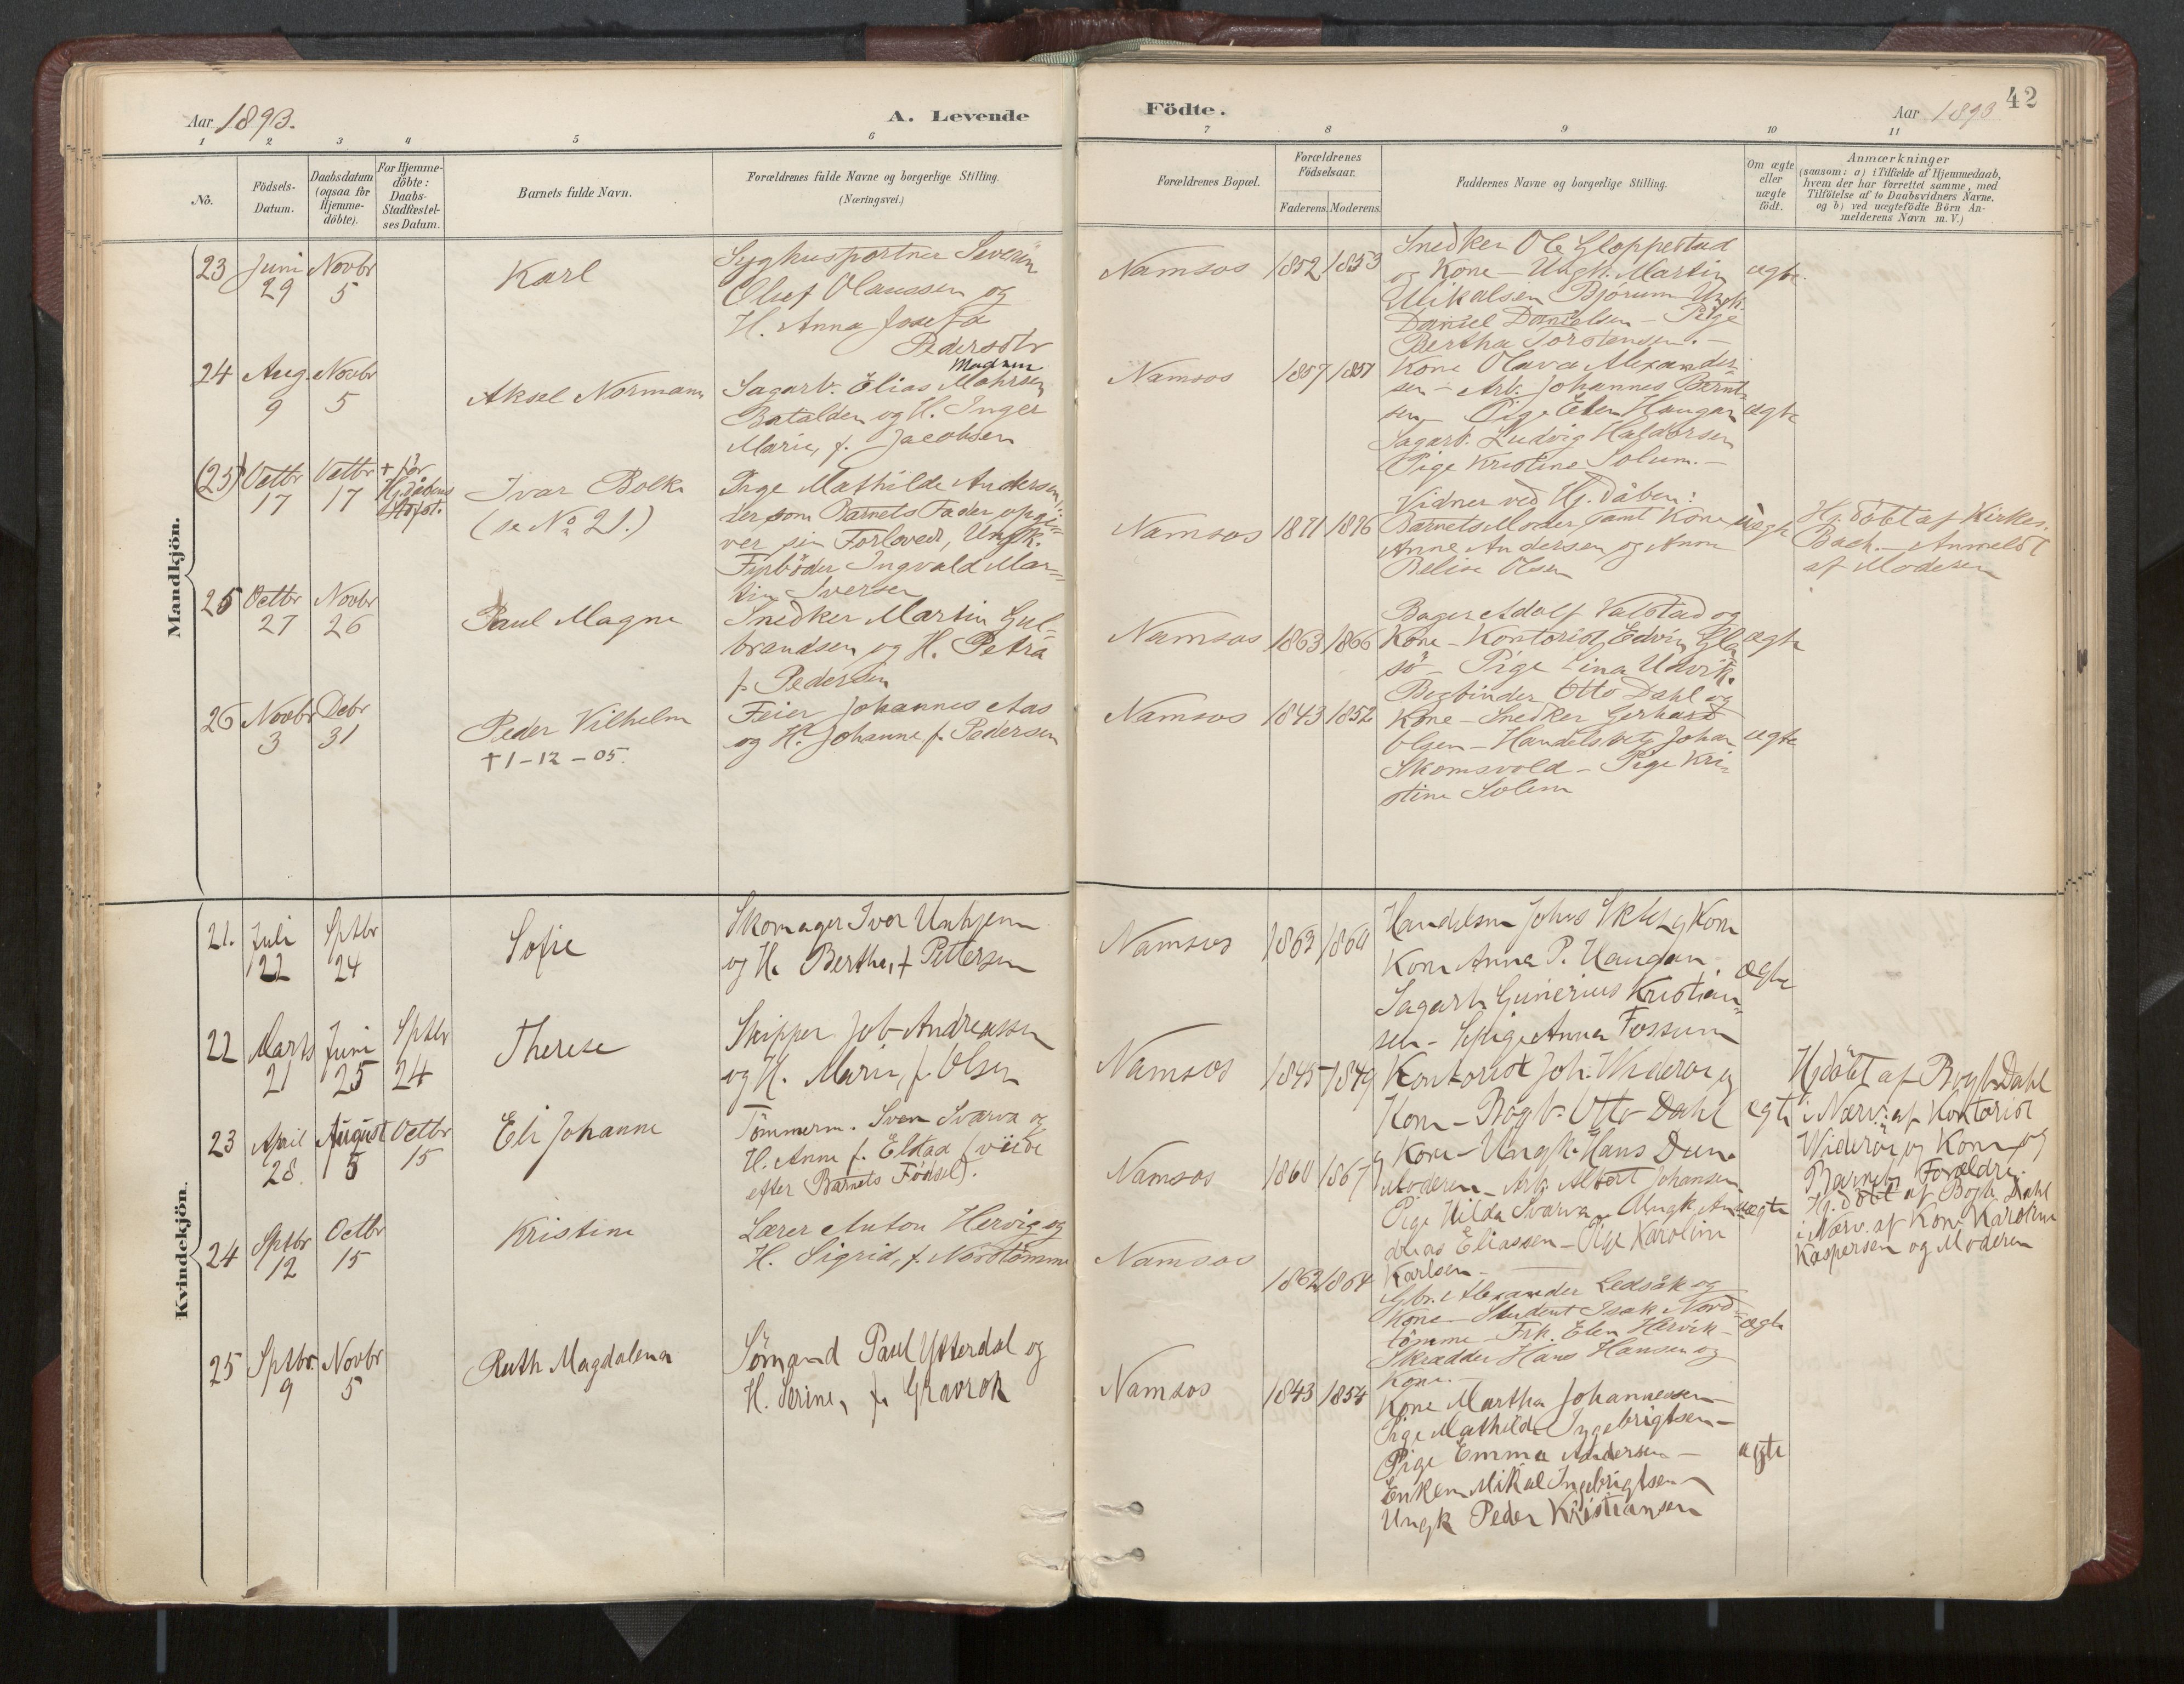 Aar 1893.
A. Levende
1 2 3 4 5 6
No.
Födsels-
Datum.
Daabsdatum
(ogsaa for
Hjemme-
döbte).
For Hjemme-
döbte:
Daabs-
Stadfæstel-
ses Datum.
Barnets fulde Navn.
Forældrenes fulde Navne og borgerlige Stilling.
(Næringsvei.)
Födte.
Aar 1893
42
7 8 9 10 11
Forældrenes Bopæl.
Forældrenes
Födselsaar.
Faderens. Moderens.
Faddernes Navne og borgerlige Stilling.
Om ægte
eller
uægte
födt.
Anmærkninger
(saasom: a) i Tilfælde af Hjemmedaab,
hvem der har forrettet samme, med
Tilföielse af to Daabsvidners Navne.
og b) ved uægtefödte Börn An-
melderens Navn m. V.)
Mandkjön.
23 Juni 29 Novbr 5
Karl
Syghusportner Severin
Oluf Olaussen og
H. Anna Josefa
Pedersdtr
Namsos 1852 1853
Snedker Ole Gloppestad
og Kone - Ungk. Martin
Mikalsen Bjórum Ungk.
Daniel Danielsen - Pige
Bertha Torstensen. -
ægte.
24 Aug. 9 Novbr 5
Aksel Normann
Madsen
Sagarb. Elias
Batalden og H. Inger
Marie, f. Jacobsen
Namsos 1857 1857
Kone Olava Alexander-
sen - Arb. Johannes Bernt-
sen - Pige Elen Haugan
Sagarb. Ludvig Haldorsen
Pige Kristine Solum. -
ægte
(25) Octbr 17 Octbr 17
+ för
Hj.dåbens
Ivar Bolk
(se No 21.)
Pige Mathilde Andersen,
der som Barnets Fader opgi-
ver sin Forlovede, Ungk.
Fyrböder Ingvald Mar-
tin Iversen
Namsos 1871 1876
Vidner ved Hj. dåben:
Barnets Moder samt Kone
Anne Andersen og Anne
Olsen
uægte
Hj. döbt af Kirkes.
Bach. - Anmeldt
af Moderen
25 Octbr 27 Novbr 26
Paul Magne
Snedker Martin Gul-
brandsen og H. Petra
f. Pedersen
Namsos 1863 1866
Bager Adolf Valstad og
Kone - Kontorist Edvin Gla-
sö - Pige Lina Utvik.
ægte
26 Novbr 3 Debr 31
Peder Vilhelm
† 1-12-05.
Feier Johannes Aas
og H. Johanne f. Pedersen
Namsos 1843 1852
Bogbinder Otto Dahl og
Kone - Snedker Gerhard
Olsen - Handelsbetj. Johan
Skomsvold - Pige Kri-
stine Solem
ægte
Kvindekjön.
21. Juli 22 Sptbr 24
Sofie
Skomager Ivar Unhjem
og H. Berthe, f Pettersen
Namsos 1863 1860
Handelsm Johs og Kone
Kone Anna P. Haugan -
Sagarb Gunerius Kristian-
sen - Anna Fossum
ægte
22 Marts 21 Juni 25 Sptbr 24
Therese
Skipper Job Andreassen
og H. Marie, f. Olsen
Namsos 1845 1849
Kontorist Joh. Wideröe og
Kone - Bogb. Otto Dahl
og Kone - Ungk. Hans Dun.
ægte
Hjdöbt af Bogb Dahl
i Nærv: af Kontorist
Wideröe og Kone og
Barnets Forældre.
23 April 28. August 5 Octbr 15
Eli Johanne
Tömmerm. Sven Svarva og
H. Anne f. Elstad (
efter Barnets Födsel).
Namsos 1860 1867
Moderen - Arb. Albert Johansen
Pige Hilda Svarva - Ungk. An-
dreas Eliassen - Pige Karoline
Karlsen -
ægte
Hj. döbt af Bogb. Dahl
i Nærv. af Kone Karoline
Kaspersen og Moderen
24 Sptbr 12 Octbr 15
Kristine
Lærer Anton Hervig og
H. Sigrid, f. Nordtömme
Namsos
1862 1864
Gbr. Alexander Ledsåk og
Kone - Student Isak Nord-
tömme - Frk. Elen Hervik -
Skrædder Hans Hansen og
Kone. -
ægte
25 Sptbr. 9 Novbr 5
Ruth Magdalena
Sömand Paul Ytterdal og
H. Serine, f. Gravrok
Namsos 1843 1854
Kone Martha Johannessen -
Pige Mathilde Ingebrigtsen -
Pige Emma Andersen -
Enkem Mikal Ingebrigtsen
Ungk Peder Kristiansen
ægte